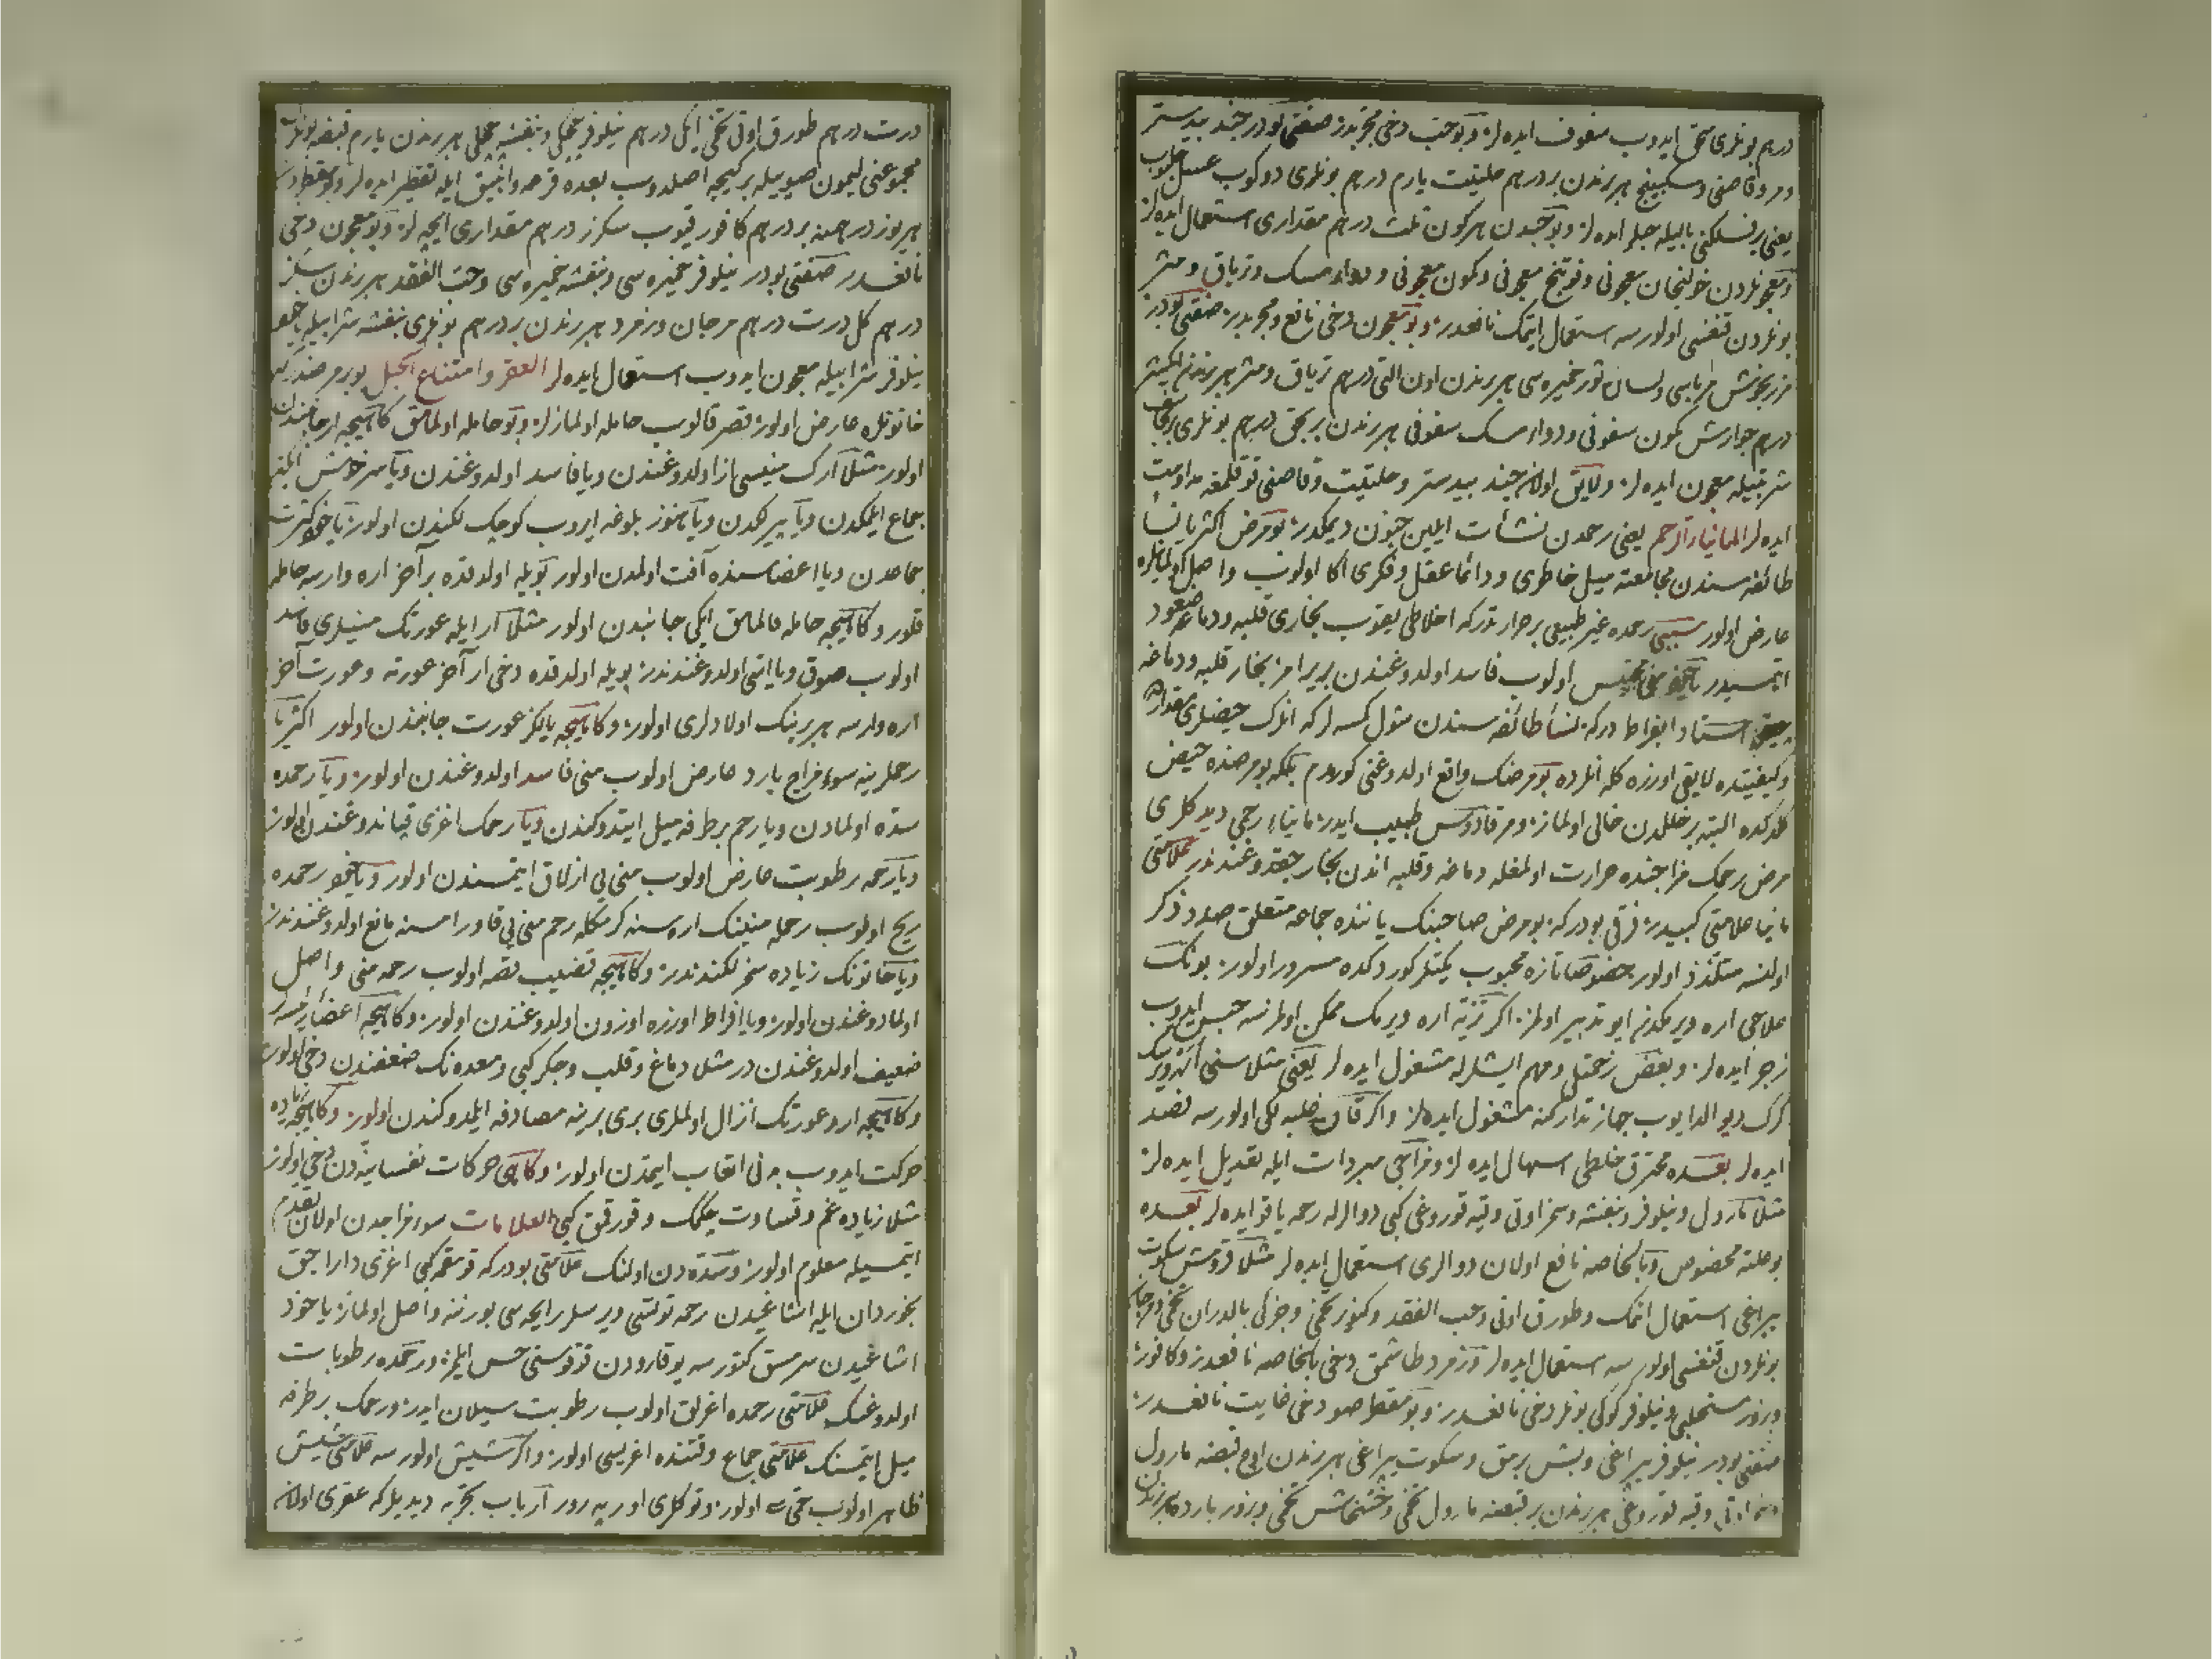 درهم بونلری سحق ایدوب سفوف ایده لر وبو حب دخی مجربدر صنعتی بودر جند بیدستر
ومر وقاصنی وسکبینج هر برندن بر درهم حلتیت یارم درهم بونلری دوکوب عسل
یعنی بر نسلکنی بالیله حبلر ایده لر وبو حبدن هر کون ثلث درهم مقداری استعمال ایده لر
ومعجونلردن خولنجان معجونی وفوتنج معجونی وکمون معجونی ودواء مسک وتریاق ومثر
بونلردن قنغسی اولورسه استعمال ایتمک نافعدر وبو معجون دخی نافع ومجربدر صنعتی بودر
مرزنجوش مرباسی ولسان ثور خمیره سی هر برندن اون التی درهم تریاق ومثر هر برندن ایکیشر
درهم جوارش کمون سفوفی ودواء مسک سفوفی هر برندن بر بچق درهم بونلری
شربتیله معجون ایده لر ولایق اولان جند بیدستر وحلتیت وقاصنی قوقلمغه مداومت
ایده لر المانیاء الرحم یعنی رحمدن نشأت ایلین جنون دیمکدر بو مرض اکثریا نسا
طائفه سندن مجامعته میل خاطری ودائما عقل وفکری اکا اولوب واصل اولمیانلره
عارض اولور سببی رحمده غیر طبیعی بر حرارتدرکه اخلاطی یقوب بخاری قلبه ودماغه صعود
ایتمسیدر یاخود منی محتبس اولوب فاسد اولدوغندن بریرامز بخار قلبه ودماغه
چیقر استاد ابقراط درکه نسا طائفه سندن شول کمسه لرکه انلرک حیضلری مقدارده
وکیفیتده لایقی اوزره کله انلرده بو مرضک واقع اولدوغنی کورمدم بلکه بو مرضده حیض
کلدکده البته بر خللدن خالی اولماز ومرقادوس طبیب ایدر مانیاء رحمی دیدکلری
مرض رحمک مزاجنده حرارت اولمغله دماغه وقلبه اندن بخار چیقدوغندندر علامتی
مانیا علامتی کبیدر فرقی بودرکه بو مرض صاحبنک یاننده جماعه متعلق صدد ذکر
اولنسه متلذذ اولور خصوصا تازه محبوب یکتلر کوردکده مسرور اولور بونک
علاجی اره ویرمکدن ایو تدبیر اولمز اکر تیز اره ویرمک ممکن اولمزسه حبس ایدوب
زجر ایده لر وبعض زحمتلی ومهم ایشلرله مشغول ایده لر یعنی مثلا سنی
کرک دیو الدایوب جهاز تدارکنه مشغول ایده لر واکر قان غلبه لکی اولورسه فصد
ایده لر بعده محترق خلطی اسهال ایده لر ومزاجی مبردات ایله تعدیل ایده لر
مثلا مارول ونیلوفر وبنفشه وسمزاوتی وقیه قوروغی کبی دوالرله رحمه یاقو ایده لر بعده
بو علته مخصوص وبالخاصه نافع اولان دوالری استعمال ایده لر مثلا قورتمش سکوت
یپراغی استعمال اتمک وطورق اوتی وحب الفقد وکنویر تخمی وجزکی بالدران تخمی ومرجان
بونلردن قنغسی اولورسه استعمال ایده لر وزمرد طاشمق دخی بالخاصه نافعدر وکافور
وبزور مستحلبی ونیلوفر کوکی بونلر دخی نافعدر وبو مقطر صو دخی غایت نافعدر
صنعتی بودر نیلوفر یپراغی وبش برمق وسکوت یپراغی هر برندن ایوج قبضه مارول
وسمزاوتی وقیه قوروغی هر برندن بر قبضه مارول تخمی وخشخاش تخمی وبزور بارده هر برندن
درت درهم طورق اوتی تخمی ایکی درهم نیلوفر چچکی وبنفشه چچکی هر برندن یارم قبضه بونلرک
مجموعنی لیمون صوییله بر کیجه اصلدوب بعده قرعه وانبیق ایله تقطیر ایده لر وبو مقطردن
هر یوز درهمنه بر درهم کافور قیوب سکز درهم مقداری ایچه لر وبو معجون دخی
نافعدر صنعتی بودر نیلوفر خمیره سی وبنفشه خمیره سی وحب الفقد هر برندن سکز
درهم کل درت درهم مرجان وزمرد هر برندن بر درهم بونلری بنفشه شرابیله یاخود
نیلوفر شرابیله معجون ایدوب استعمال ایده لر العقر وامتناع الحبل بو بر مرضدرکه
خاتونلره عارض اولور قصر قالوب حامله اولمازلر وبو حامله اولمامق کاهیجه ار جانبندن
اولور مثلا ارک منیسی از اولدوغندن ویا فاسد اولدوغندن ویا سرخوش ایکن
جماع ایلمکدن ویا پیرلکدن ویا هنوز بلوغه ایروب کوچک لکندن اولور یاخود کثرت
جماعدن ویا اعضاسنده آفت اولمدن اولور بویله اولدقده بر آخر اره وارسه حامله
قلور وکاهیجه حامله قالمامق ایکی جانبدن اولور مثلا ار ایله عورتک منیلری فاسد
اولوب صوق ویا اسی اولدوغندندر بویله اولدقده دخی ار آخر عورته وعورت آخر
اره وارسه هر برینک اولادلری اولور وکاهیجه یالکز عورت جانبندن اولور اکثریا
رحملرینه سوء مزاج بارد عارض اولوب منی فاسد اولدوغندن اولور ویا رحمده
سده اولمادن ویا رحم بر طرفه میل ایتدوکندن ویا رحمک اغزی قپاندوغندن اولور
ویا رحمه رطوبت عارض اولوب منی یی ازلاق ایتمسندن اولور ویاخود رحمده
ریح اولوب رحمله منینک اره سنه کرمکله رحم منی یی قاورامسنه مانع اولدوغندندر
ویا خاتونک زیاده سمزلکندندر وکاهیجه قضیب قصه اولوب رحمه منی واصل
اولمادوغندن اولور ویا افراط اوزره اوزون اولدوغندن اولور وکاهیجه اعضاء رئیسه
ضعیف اولدوغندن در مثلا دماغ وقلب وجکر کبی ومعده نک ضعفندن دخی اولور
وکاهیجه ار وعورتک انزال اولملری بری برینه مصادفه ایلمدوکندن اولور وکاهیجه زیاده
حرکت ایدوب بدنی اتعاب ایتمدن اولور وکاهی حرکات نفسانیه دن دخی اولور
مثلا زیاده غم وقساوت چکمک وقورقمق کبی العلامات سوء مزاجدن اولان تقدم
ایتمسیله معلوم اولور وسده دن اولنک علامتی بودرکه قومقمه کبی اغزی دارا جق
بخوردان ایله اشاغیدن رحمه توتسی ویرسلر رایحه سی بورننه واصل اولماز یاخود
اشاغیدن سرمسق کتورسه یوقارودن قوقوسنی حس ایلمز ورحمده رطوبات
اولدوغنک علامتی رحمده اغرلق اولوب رطوبت سیلان ایدر ورحمک بر طرفه
میل ایتمسنک علامتی جماع وقتنده اغریسی اولور واکر شیش اولورسه علامتی شیش
ظاهر اولوب حمی اولور وتوکلری اوریه رور ارباب تجربه دیدیلرکه عقری اولان